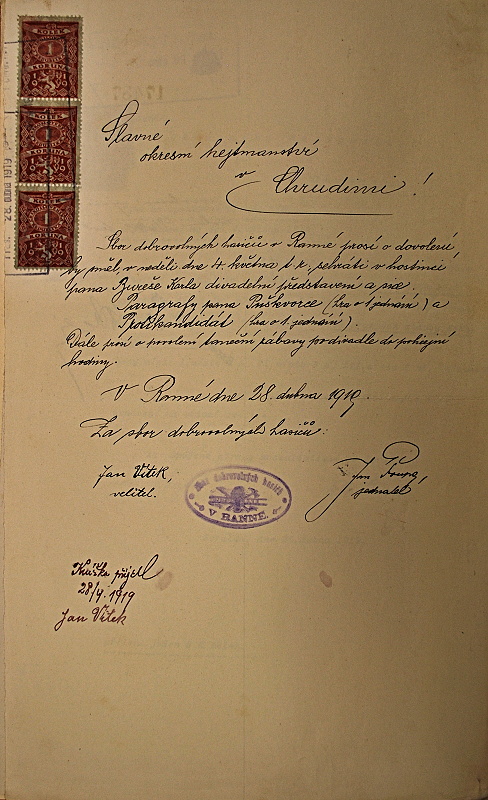 KOLEK
1
KORUNA
1919
KOLEK
1
KORUNA
1919
KOLEK
1
KORUNA
1919
28. DUBNA 1919
Slavné
okresní hejtmanství
v
Chrudimi!
Sbor dobrovolných hasičů v Ranné prosí o dovolení,
by směl, v neděli dne 4. května t. r. sehráti v hostinci
pana Bureše Karla divadelní představení a sice:
Paragrafy pana Puškvorce (hra o 1 jednání) a
Protikandidát (hra o 1. jednání).
Dále prosí o povolení taneční zábavy po divadle do policejní
hodiny.
V Ranné dne 28. dubna 1919.
Za sbor dobrovolných hasičů:
Jan Vítek,
velitel.
Sbor dobrovolných hasičů
V RANNÉ.
Jan
jednatel
přijal
28/4. 1919
Jan Vítek